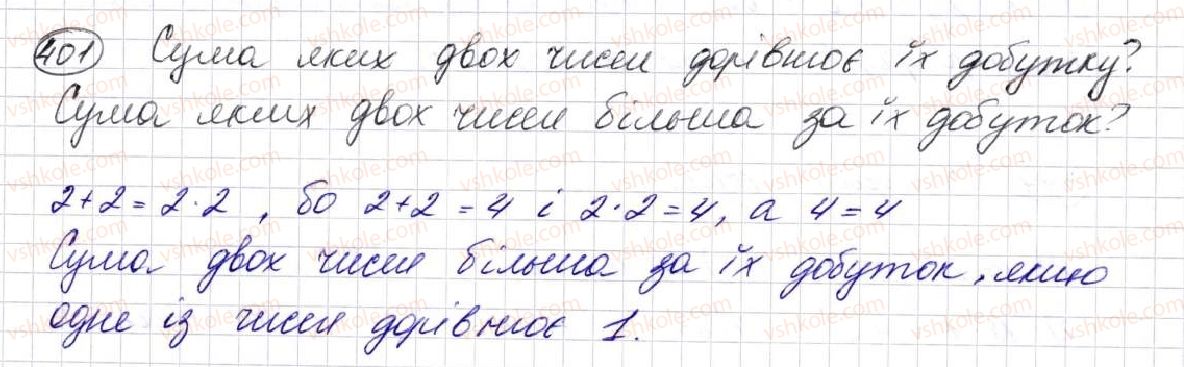 401 Сума яких двох чисел дорівнює їх добутку?
Сума яких двох чисел більша за їх добуток?
2+2=2·2, бо 2+2=4 і 2·2=4, а 4=4
Сума двох чисел більша за їх добуток, якщо
одне із чисел дорівнює 1.